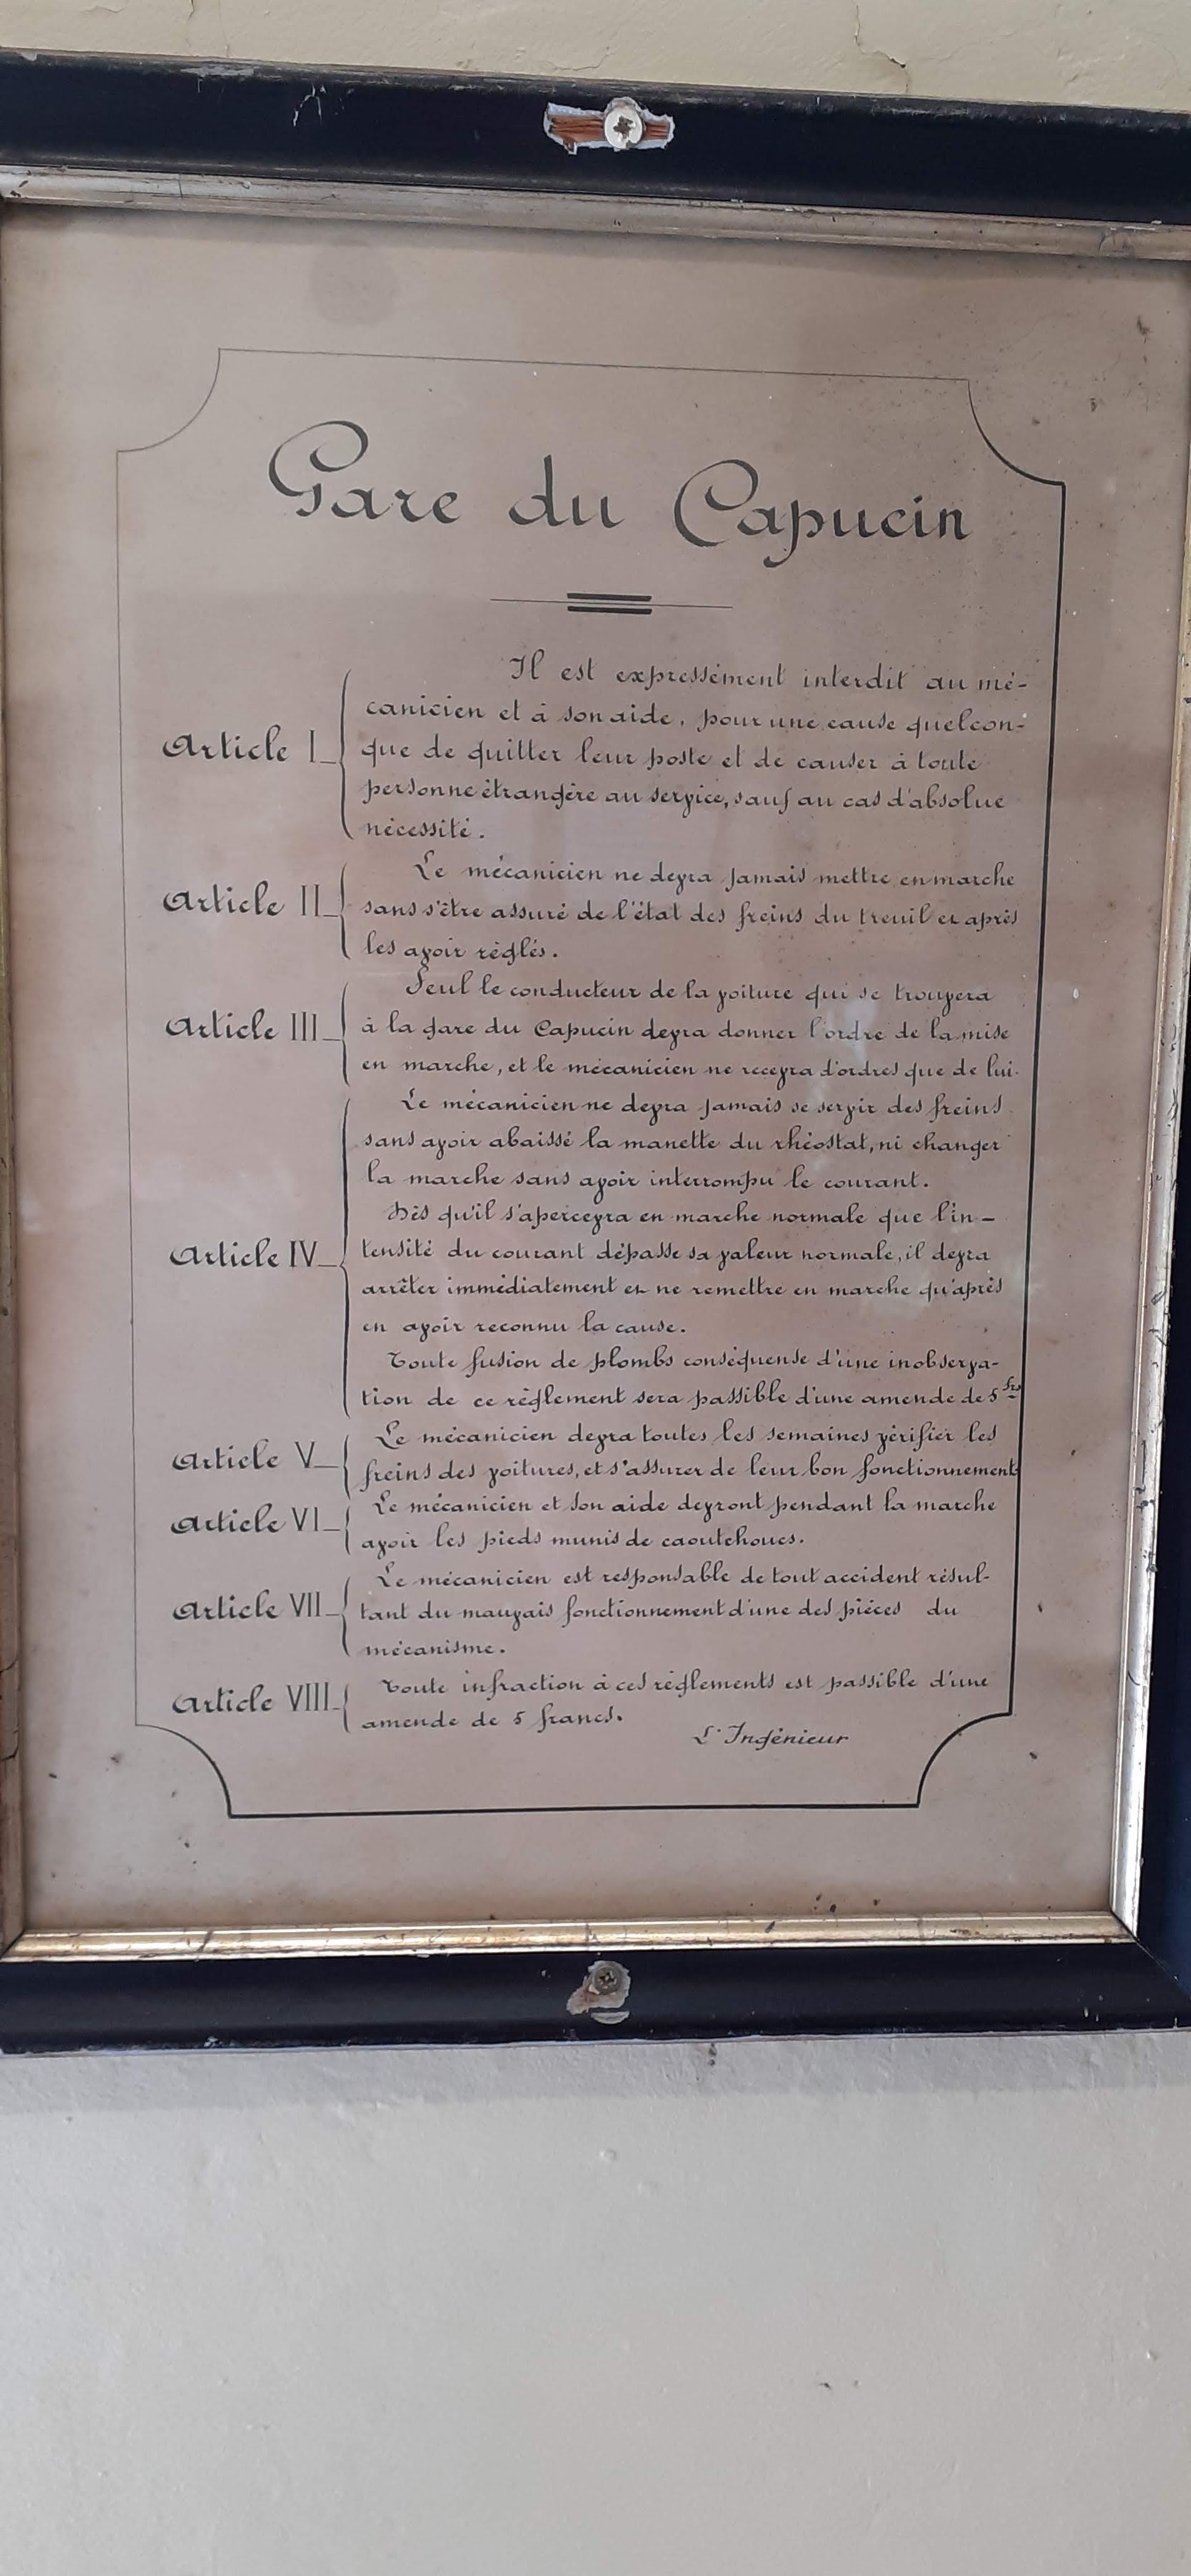 Gare du Capucin
Il est expressément interdit au mé-
canicien et à son aide, pour une cause quelcon-
Article I
que de quitter leur poste et de causer à toute
personne étrangère au service, sauf au cas d'absolue
nécessité.
Le mécanicien ne devra jamais mettre en marche
Article II
sans s'être assuré de l'état des freins du treuil et après
les avoir réglés.
Seul le conducteur de la voiture qui se trouvera
Article III
à la gare du Capucin devra donner l'ordre de la mise
en marche, et le mécanicien ne recevra d'ordres que de lui.
Le mécanicien ne devra jamais se servir des freins
sans avoir abaissé la manette du rhéostat, ni changer
la marche sans avoir interrompu le courant.
Dès qu'il s'apercevra en marche normale que l'in-
Article IV
tensité du courant dépasse sa valeur normale, il devra
arrêter immédiatement et ne remettre en marche qu'après
en avoir reconnu la cause.
Toute fusion de plombs conséquense d'une inobserva-
tion de ce règlement sera passible d'une amende de 5 frs
Le mécanicien devra toutes les semaines vérifier les
Article V
freins des voitures, et s'assurer de leur bon fonctionnement
Le mécanicien et son aide devront pendant la marche
Article VI
avoir les pieds munis de caoutchoucs.
Le mécanicien est responsable de tout accident résul-
Article VII
tant du mauvais fonctionnement d'une des pièces du
mécanisme.
Toute infraction à ces règlements est passible d'une
Article VIII
amende de 5 francs.
L'Ingénieur